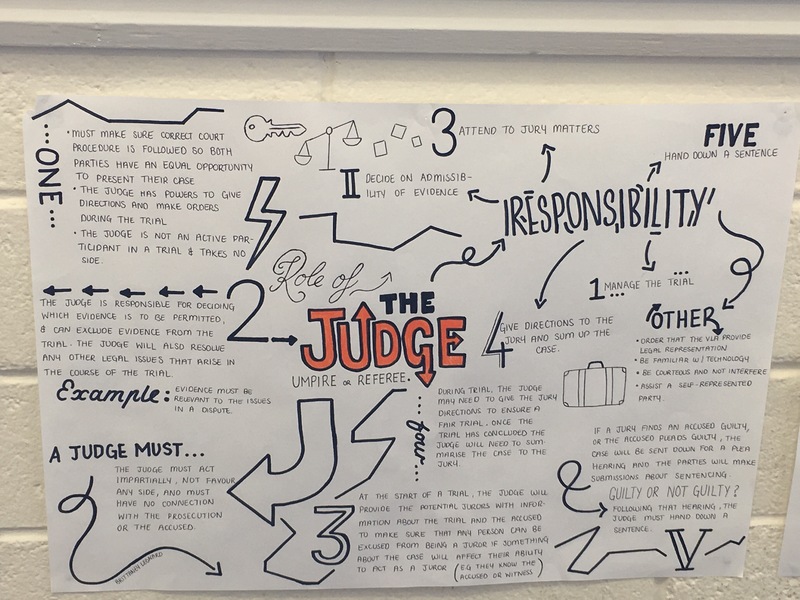 ...ONE...
• MUST MAKE SURE CORRECT COURT
PROCEDURE IS FOLLOWED SO BOTH
PARTIES HAVE AN EQUAL OPPORTUNITY
TO PRESENT THEIR CASE
• THE JUDGE HAS POWERS TO GIVE
DIRECTIONS AND MAKE ORDERS
DURING THE TRIAL
• THE JUDGE IS NOT AN ACTIVE PAR-
TICIDANT IN A TRIAL & TAKES NO
SIDE.
II DECIDE ON ADMISSIB-
ILITY OF EVIDENCE
3 ATTEND TO JURY MATTERS
FIVE
HAND DOWN A SENTENCE
RESPONSIBILITY
1 MANAGE THE TRIAL
4 GIVE DIRECTIONS TO THE
JURY AND SUM UP THE
CASE.
OTHER
• ORDER THAT THE VLA PROVIDE
LEGAL REPRESENTATION
• BE FAMILIAR W/ TECHNOLOGY
• BE COURTEOUS AND NOT INTERFERE
• ASSIST A SELF-REPRESENTED
PARTY.
Role of
THE
JUDGE
UMPIRE OR REFEREE.
2
THE JUDGE IS RESPONSIBLE FOR DECIDING
WHICH EVIDENCE IS TO BE PERMITTED,
& CAN EXCLUDE EVIDENCE FROM THE
TRIAL. THE JUDGE WILL ALSO RESOLVE
ANY OTHER LEGAL ISSUES THAT ARISE IN
THE COURSE OF THE TRIAL.
Example: EVIDENCE MUST BE
RELEVANT TO THE ISSUES
IN A DISPUTE.
A JUDGE MUST...
THE JUDGE MUST ACT
IMPARTIALLY, NOT FAVOUR
ANY SIDE, AND MUST
HAVE NO CONNECTION
WITH THE PROSECUTION
OR THE ACCUSED.
BRITTANEY
...four...
DURING TRIAL, THE JUDGE
MAY NEED TO GIVE THE JURY
DIRECTIONS TO ENSURE A
FAIR TRIAL. ONCE THE
TRIAL HAS CONCLUDED THE
JUDGE WILL NEED TO SUM-
MARISE THE CASE TO THE
JURY.
3
AT THE START OF A TRIAL, THE JUDGE WILL
PROVIDE THE POTENTIAL JURORS WITH INFOR-
MATION ABOUT THE TRIAL AND THE ACCUSED
TO MAKE SURE THAT ANY PERSON CAN BE
EXCUSED FROM BEING A JUROR IF SOMETHING
ABOUT THE CASE WILL AFFECT THEIR ABILITY
TO ACT AS A JUROR (EG THEY KNOW THE
ACCUSED OR WITNESS)
IF A JURY FINDS AN ACCUSED GUILTY,
OR THE ACCUSED PLEADS GUILTY, THE
CASE WILL BE SENT DOWN FOR A PLEA
HEARING AND THE PARTIES WILL MAKE
SUBMISSIONS ABOUT SENTENCING.
GUILTY OR NOT GUILTY?
FOLLOWING THAT HEARING, THE
JUDGE MUST HAND DOWN A
SENTENCE.
V